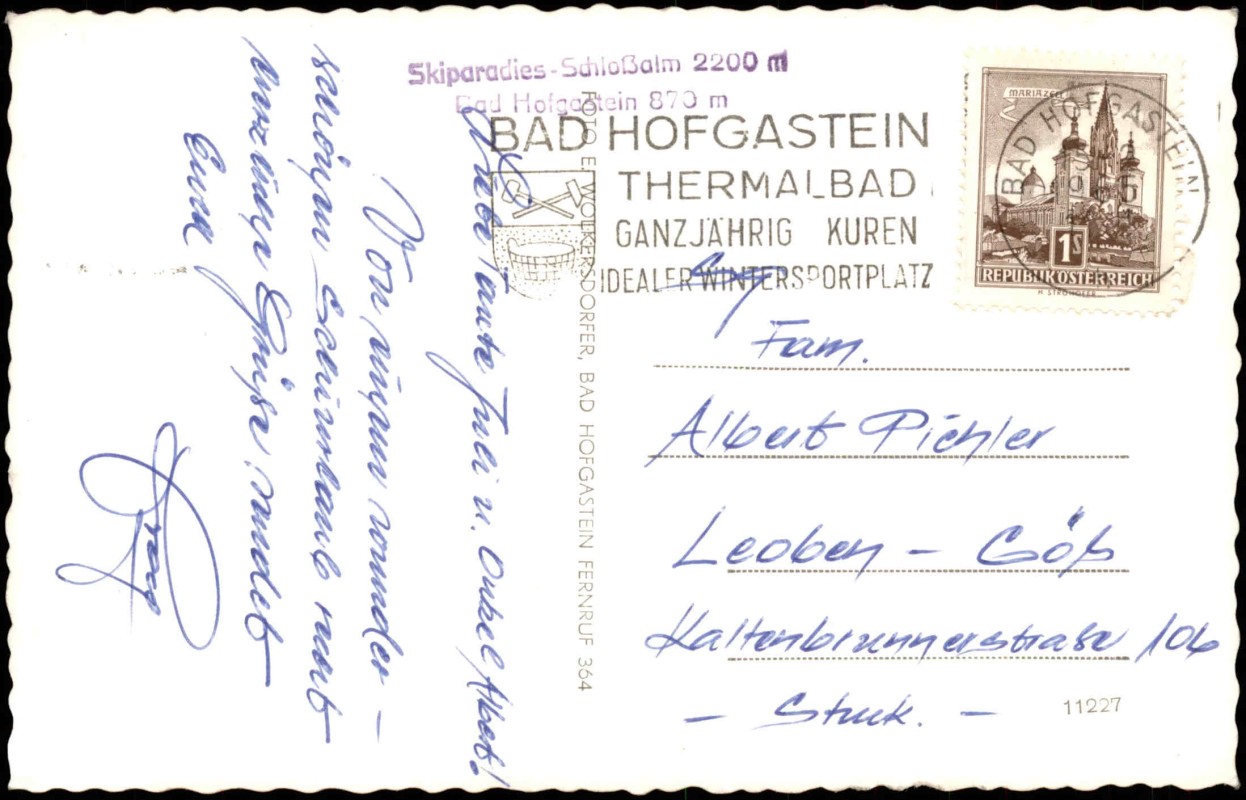 Skiparadies-Schloßalm 2200 m
Bad Hofgastein 870 m
BAD HOFGASTEIN
THERMALBAD
GANZJÄHRIG KUREN
IDEALER WINTERSPORTPLATZ
MARIAZELL
BAD HOFGASTEIN
1S
REPUBLIK ÖSTERREICH
H. STROHOFER
Liebe Tante Juli u. Onkel Albert!
Von einem wunder-
schönen Schiurlaub
Grüße sendet
Euch
FOTO E. WOLKERSDORFER, BAD HOFGASTEIN FERNRUF 364
Fam.
Albert Pichler
Leoben - Göß
Kaltenbrunnerstraße 106
- Stmk. -
11227